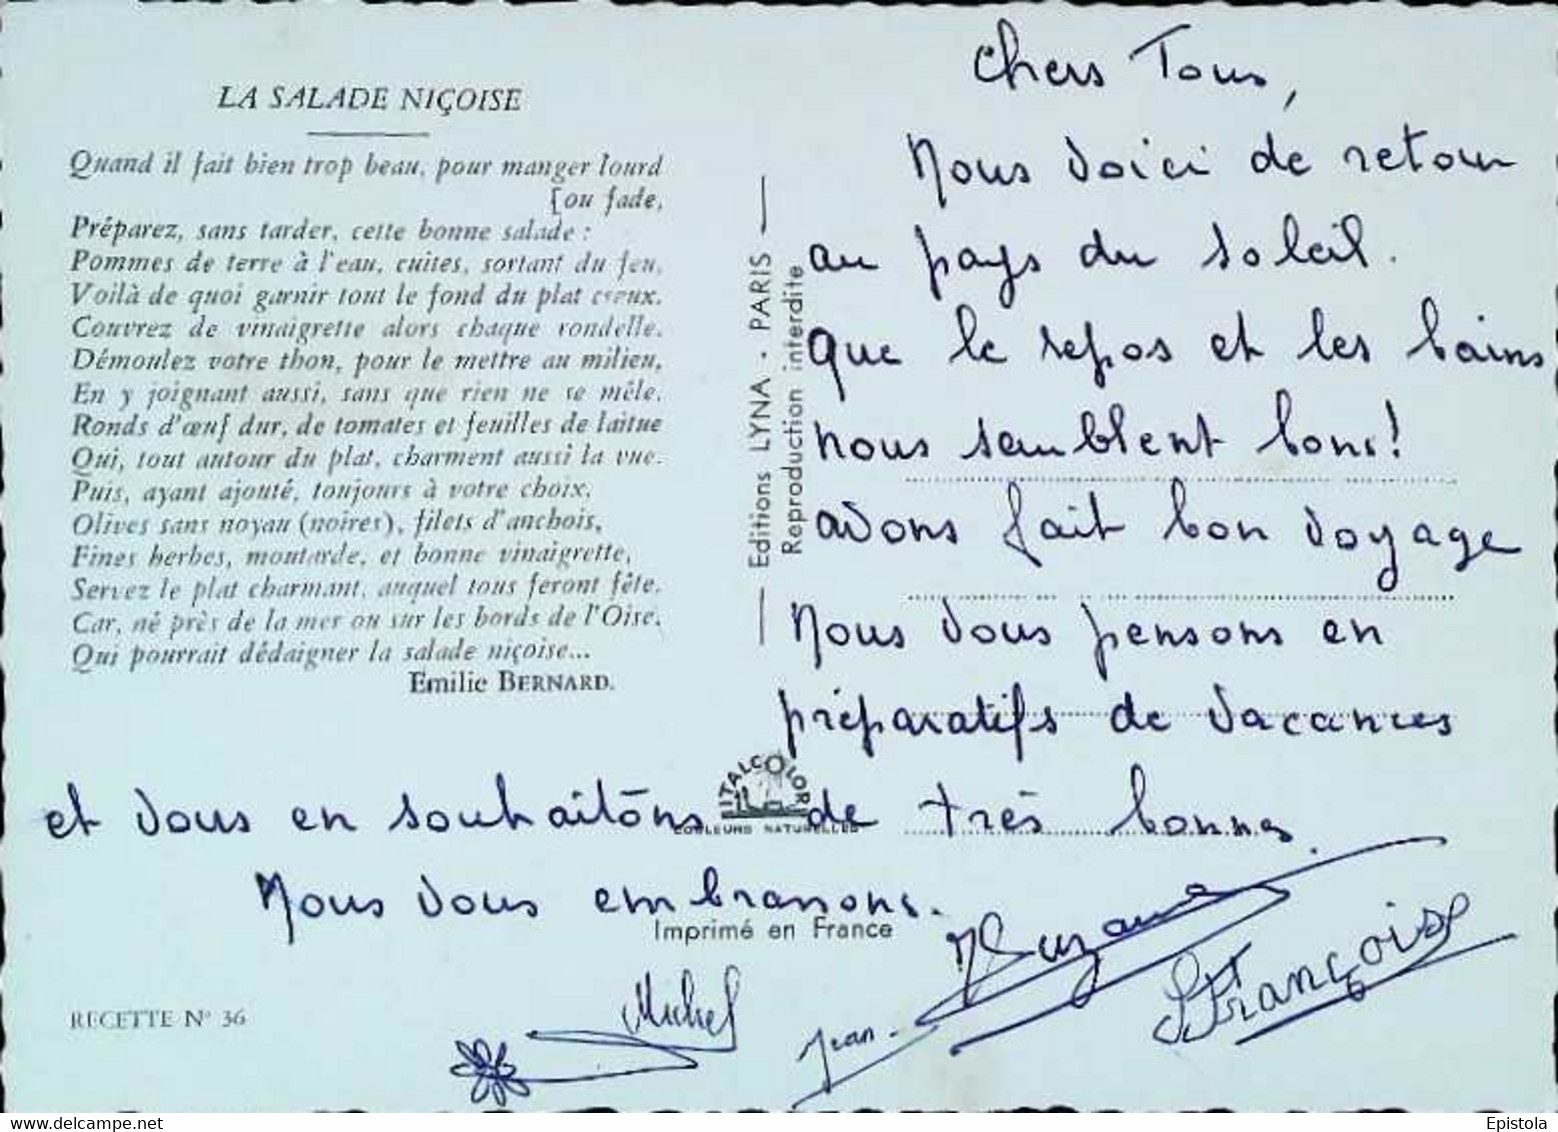 LA SALADE NIÇOISE
Quand il fait bien trop beau, pour manger lourd
[ou fade,
Préparez, sans tarder, cette bonne salade :
Pommes de terre à l'eau, cuites, sortant du feu,
Voilà de quoi garnir tout le fond du plat creux.
Couvrez de vinaigrette alors chaque rondelle.
Démoulez votre thon, pour le mettre au milieu,
En y joignant aussi, sans que rien ne se mêle.
Ronds d'œuf dur, de tomates et feuilles de laitue
Qui, tout autour du plat, charment aussi la vue.
Puis, ayant ajouté, toujours à votre choix,
Olives sans noyau (noires), filets d'anchois,
Fines herbes, moutarde, et bonne vinaigrette,
Servez le plat charmant, auquel tous feront fête.
Car, né près de la mer ou sur les bords de l'Oise,
Qui pourrait dédaigner la salade niçoise...
Emilie BERNARD.
RECETTE N° 36
Editions LYNA - PARIS
Reproduction interdite
ITALCOLOR
COULEURS NATURELLES
Imprimé en France
Chers Tous,
Nous voici de retour
au pays du soleil.
que le repos et les bains
nous semblent bons!
avons fait bon voyage
Nous vous pensons en
préparatifs de vacances
et vous en souhaitons de très bonnes.
Nous vous embrassons.
Suzanne
Michel
Jean-
Françoise
Epistola